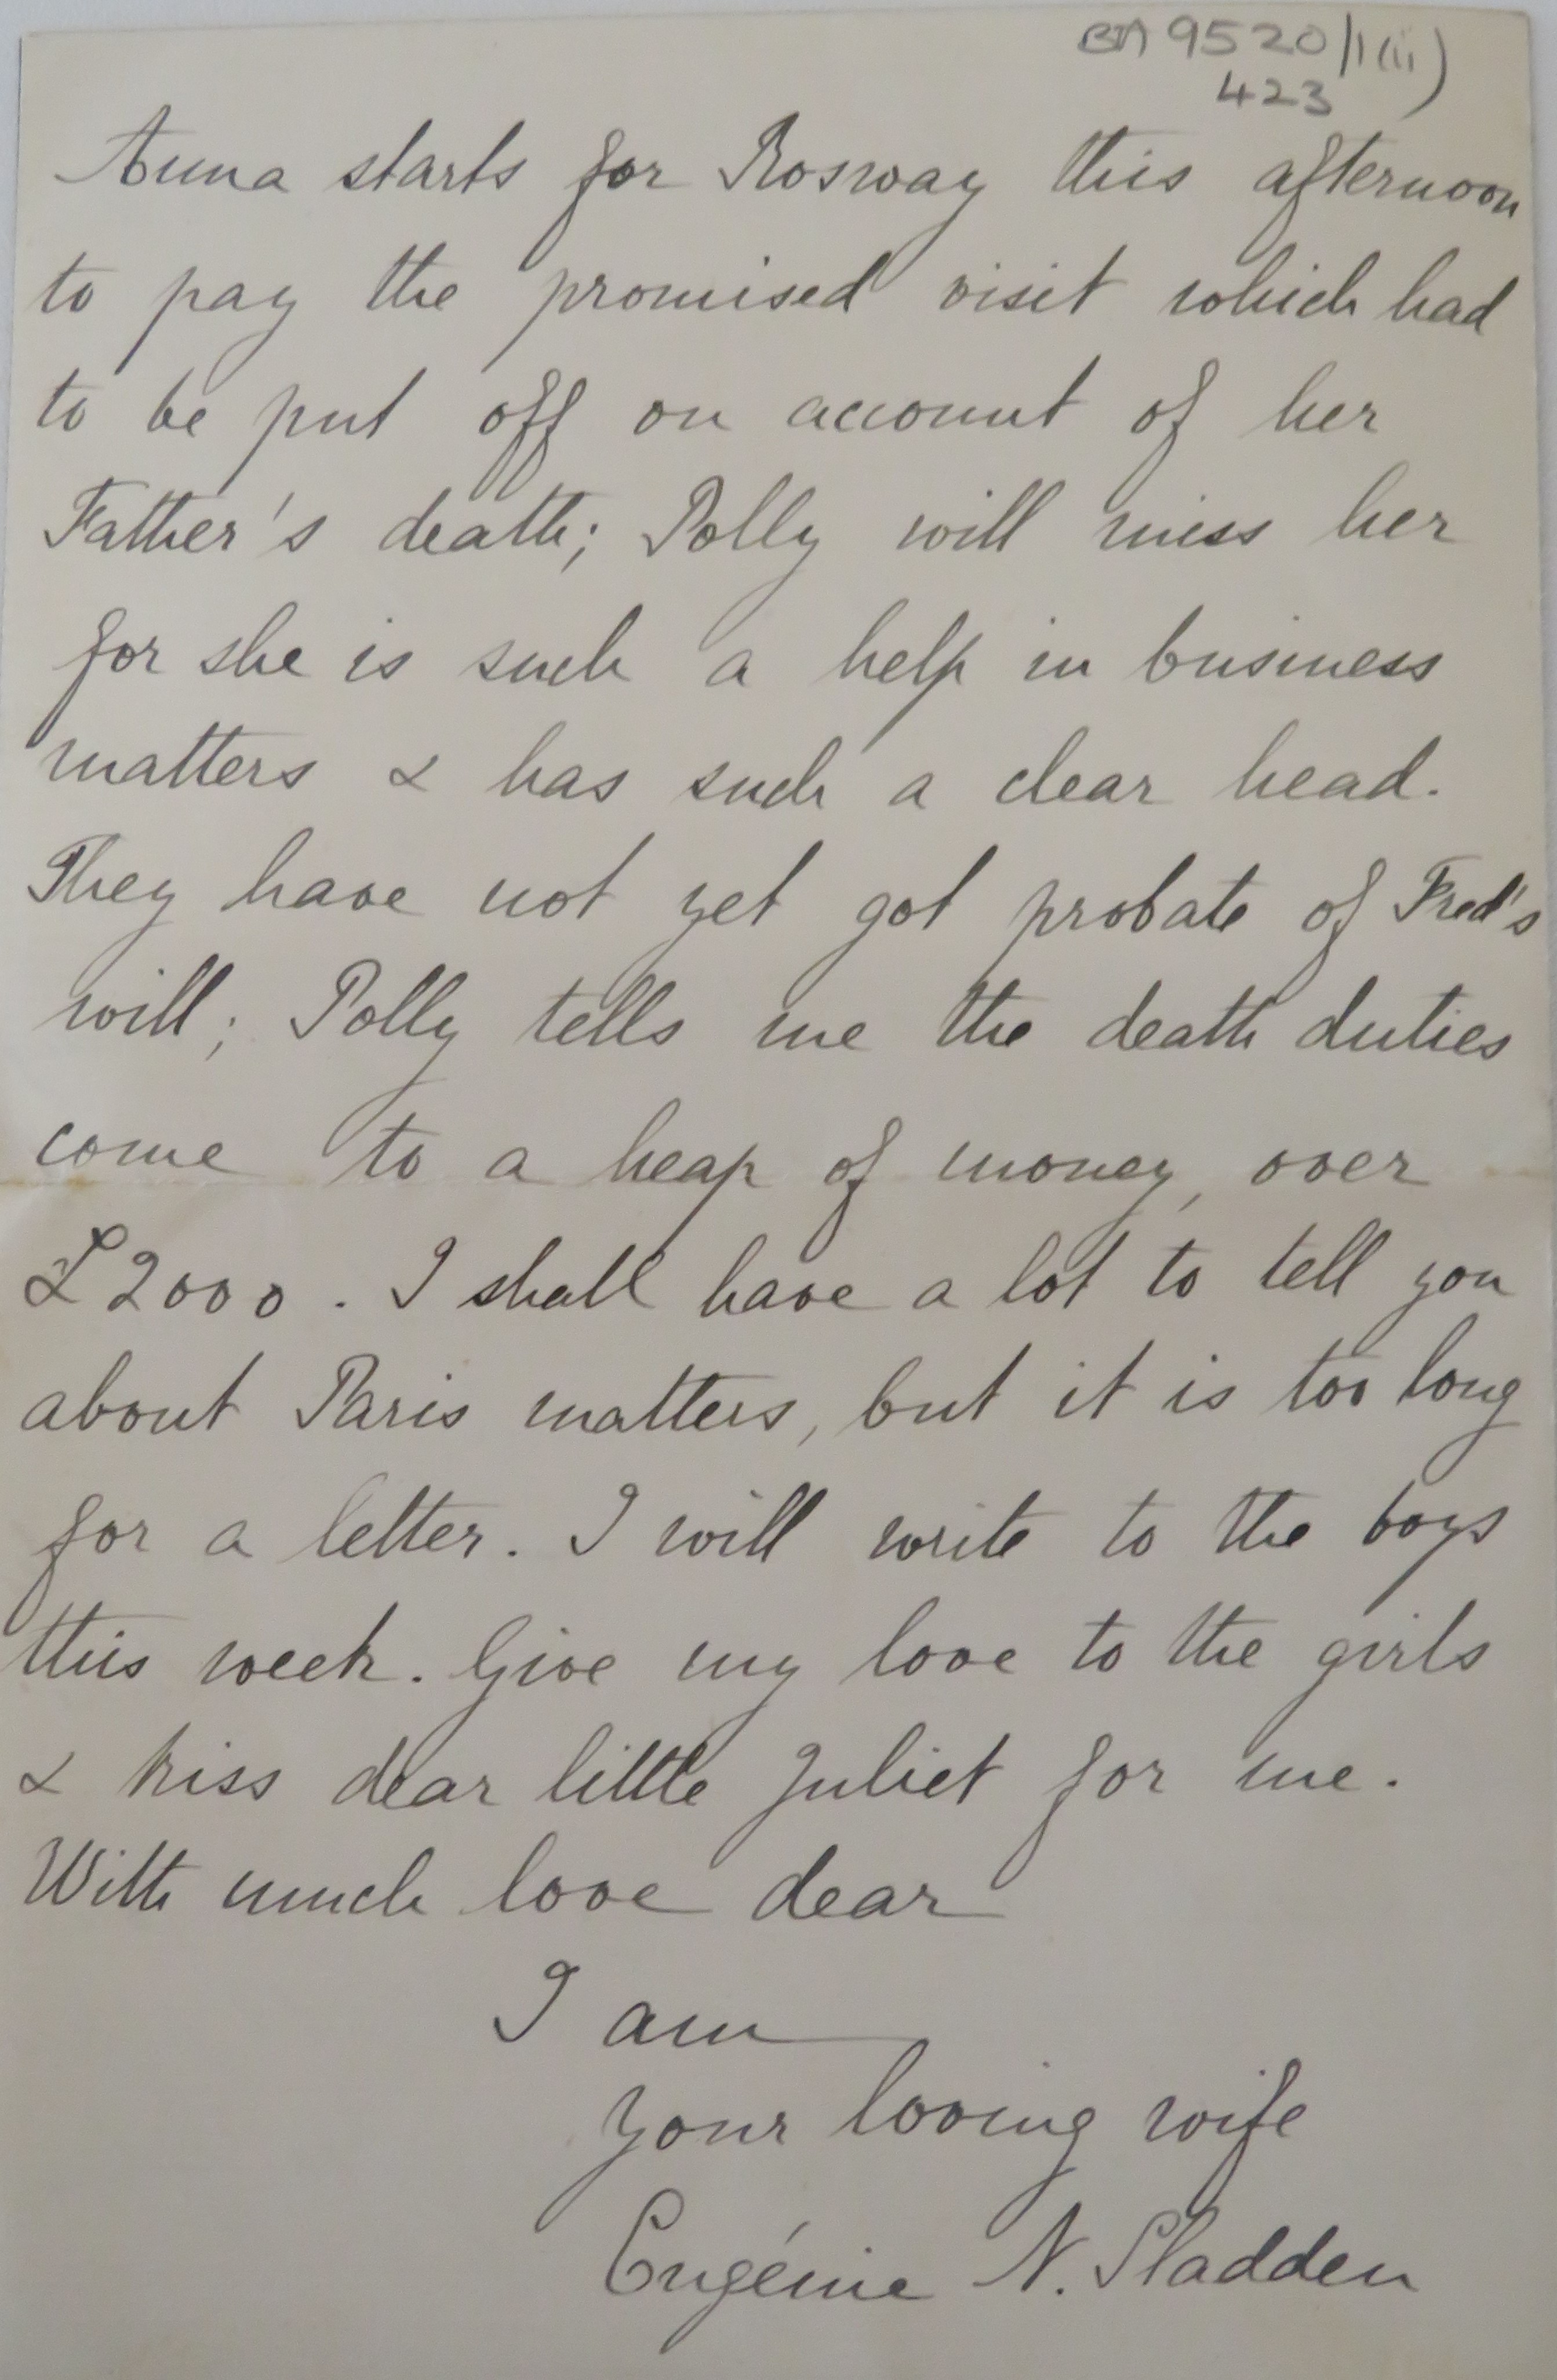 BA 9520/1(ii)
423
Anna starts for Rosway this afternoon
to pay the promised visit which had
to be put off on account of her
Father's death; Polly will miss her
for she is such a help in business
matters & has such a clear head.
They have not yet got probate of Fred's
will; Polly tells me the death duties
come to a heap of money, over
£2000. I shall have a lot to tell you
about Paris matters, but it is too long
for a letter. I will write to the boys
this week. Give my love to the girls
& kiss dear little Juliet for me.
With much love dear
I am
your loving wife
Eugénie N. Sladden